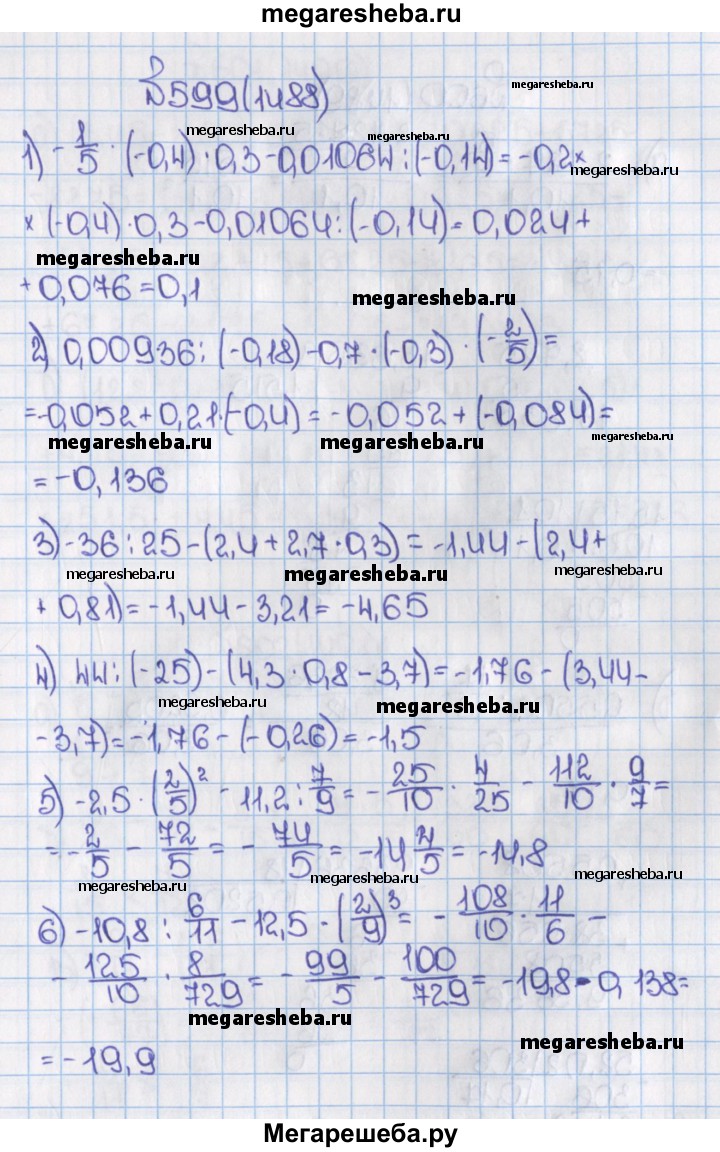 megaresheba.ru
№599(1488)
megaresheba.ru
megaresheba.ru
megaresheba.ru
1) -1/5 · (-0,4) · 0,3 - 0,01064 : (-0,14) = -0,2×
megaresheba.ru
× (-0,4) · 0,3 - 0,01064 : (-0,14) = 0,024 +
megaresheba.ru
megaresheba.ru
+ 0,076 = 0,1
megaresheba.ru
2) 0,00936 : (-0,18) - 0,7 · (-0,3) · (-2/5) =
= -0,052 + 0,21 · (-0,4) = -0,052 + (-0,084) =
megaresheba.ru
megaresheba.ru
megaresheba.ru
= -0,136
3) -36 : 25 - (2,4 + 2,7 · 0,3) = -1,44 - (2,4 +
megaresheba.ru
megaresheba.ru
megaresheba.ru
+ 0,81) = -1,44 - 3,21 = -4,65
4) 44 : (-25) - (4,3 · 0,8 - 3,7) = -1,76 - (3,44 -
megaresheba.ru
megaresheba.ru
- 3,7) = -1,76 - (-0,26) = -1,5
5) -2,5 · (2/5)² - 11,2 : 7/9 = -25/10 · 4/25 - 112/10 · 9/7 =
= -2/5 - 72/5 = -74/5 = -14 4/5 = -14,8
megaresheba.ru
megaresheba.ru
megaresheba.ru
6) -10,8 : 6/11 - 12,5 · (2/9)³ = -108/10 · 11/6 -
- 125/10 · 8/729 = -99/5 - 100/729 = -19,8 - 0,138 =
megaresheba.ru
megaresheba.ru
= -19,9
Мегарешеба.ру